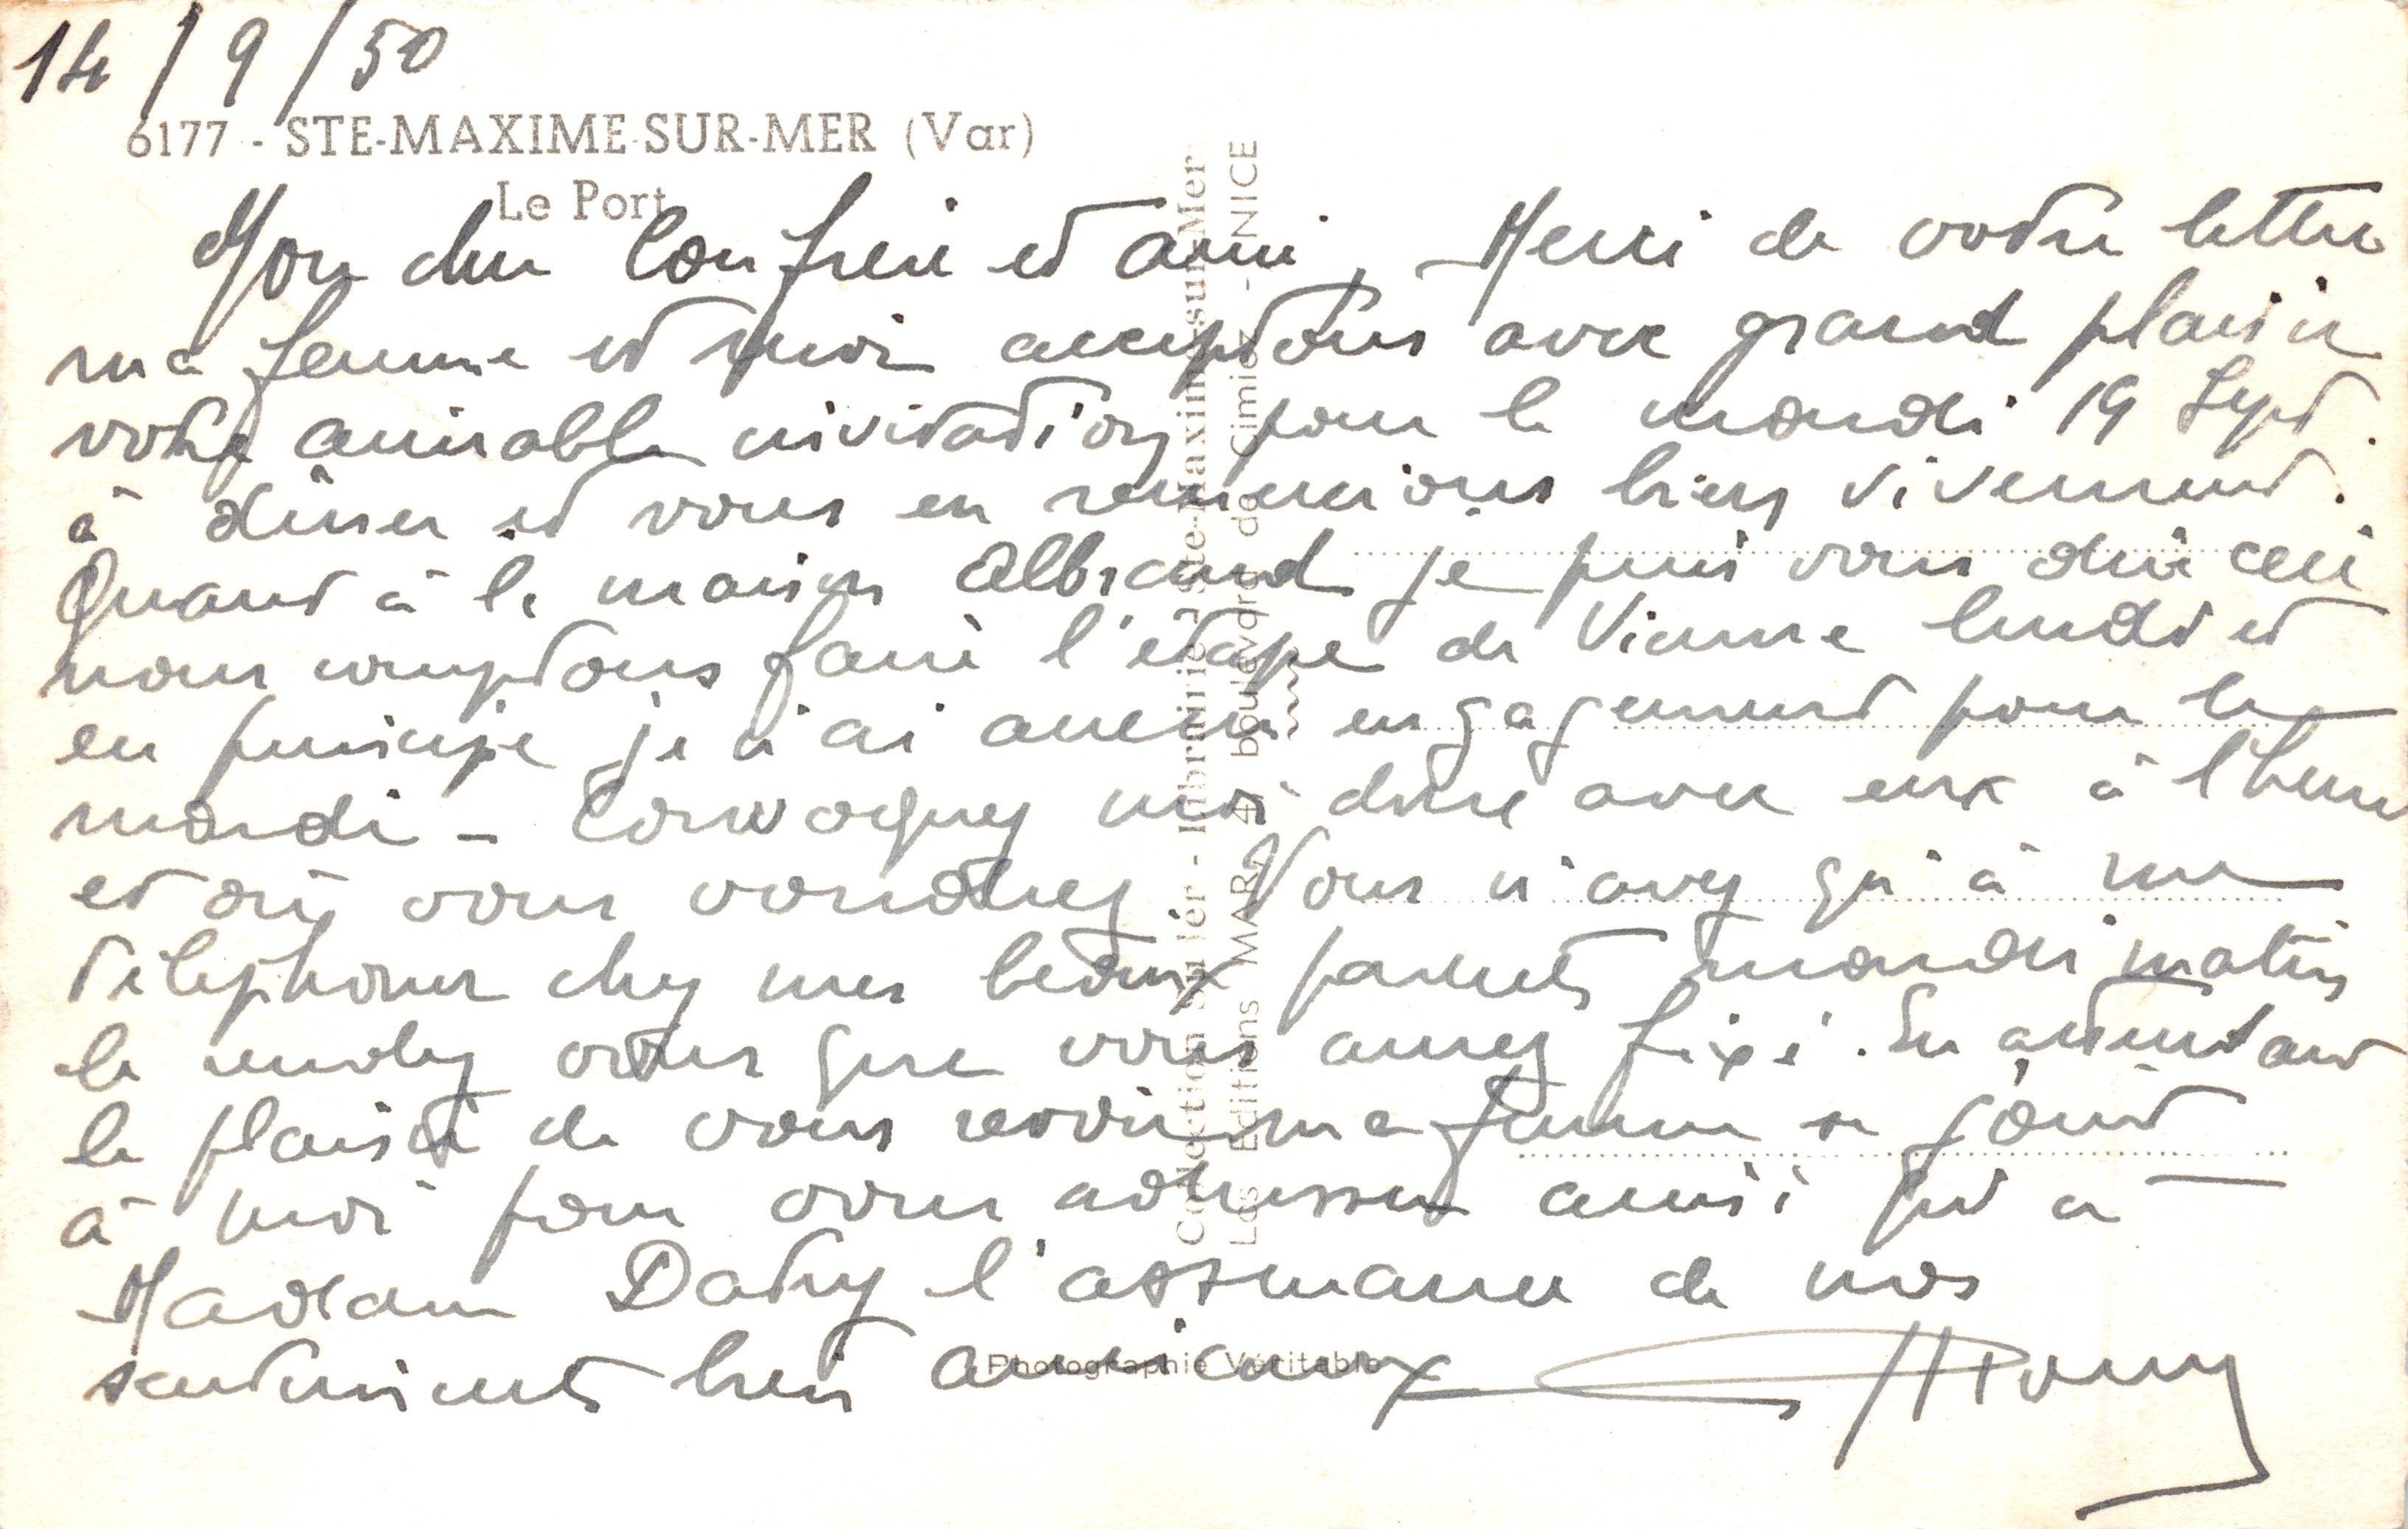 14/9/50
6177 - STE-MAXIME-SUR-MER (Var)
Le Port
Mon cher Confrère et ami, Merci de votre lettre
ma femme et moi acceptons avec grand plaisir
votre aimable invitation pour le mardi 19 Sept.
à dîner et vous en remercions bien vivement.
Quand à la maison Albrand je puis vous dire ceci
nous comptons faire l'étape de Vienne lundi et
en principe je n'ai aucun engagement pour le
mardi - Convoquez moi donc avec eux à l'heure
et où vous voudrez Vous n'avez qu'à me
téléphoner chez mes beaux parents mardi matin
le rendez vous que vous aurez fixé. En attendant
le plaisir de vous revoir ma femme se joint
à moi pour vous adresser ainsi qu'à
Madame Datry l'assurance de nos
sentiments bien amicaux
Photographie Véritable
Les Editions MAR, boulevard de Cimiez - NICE